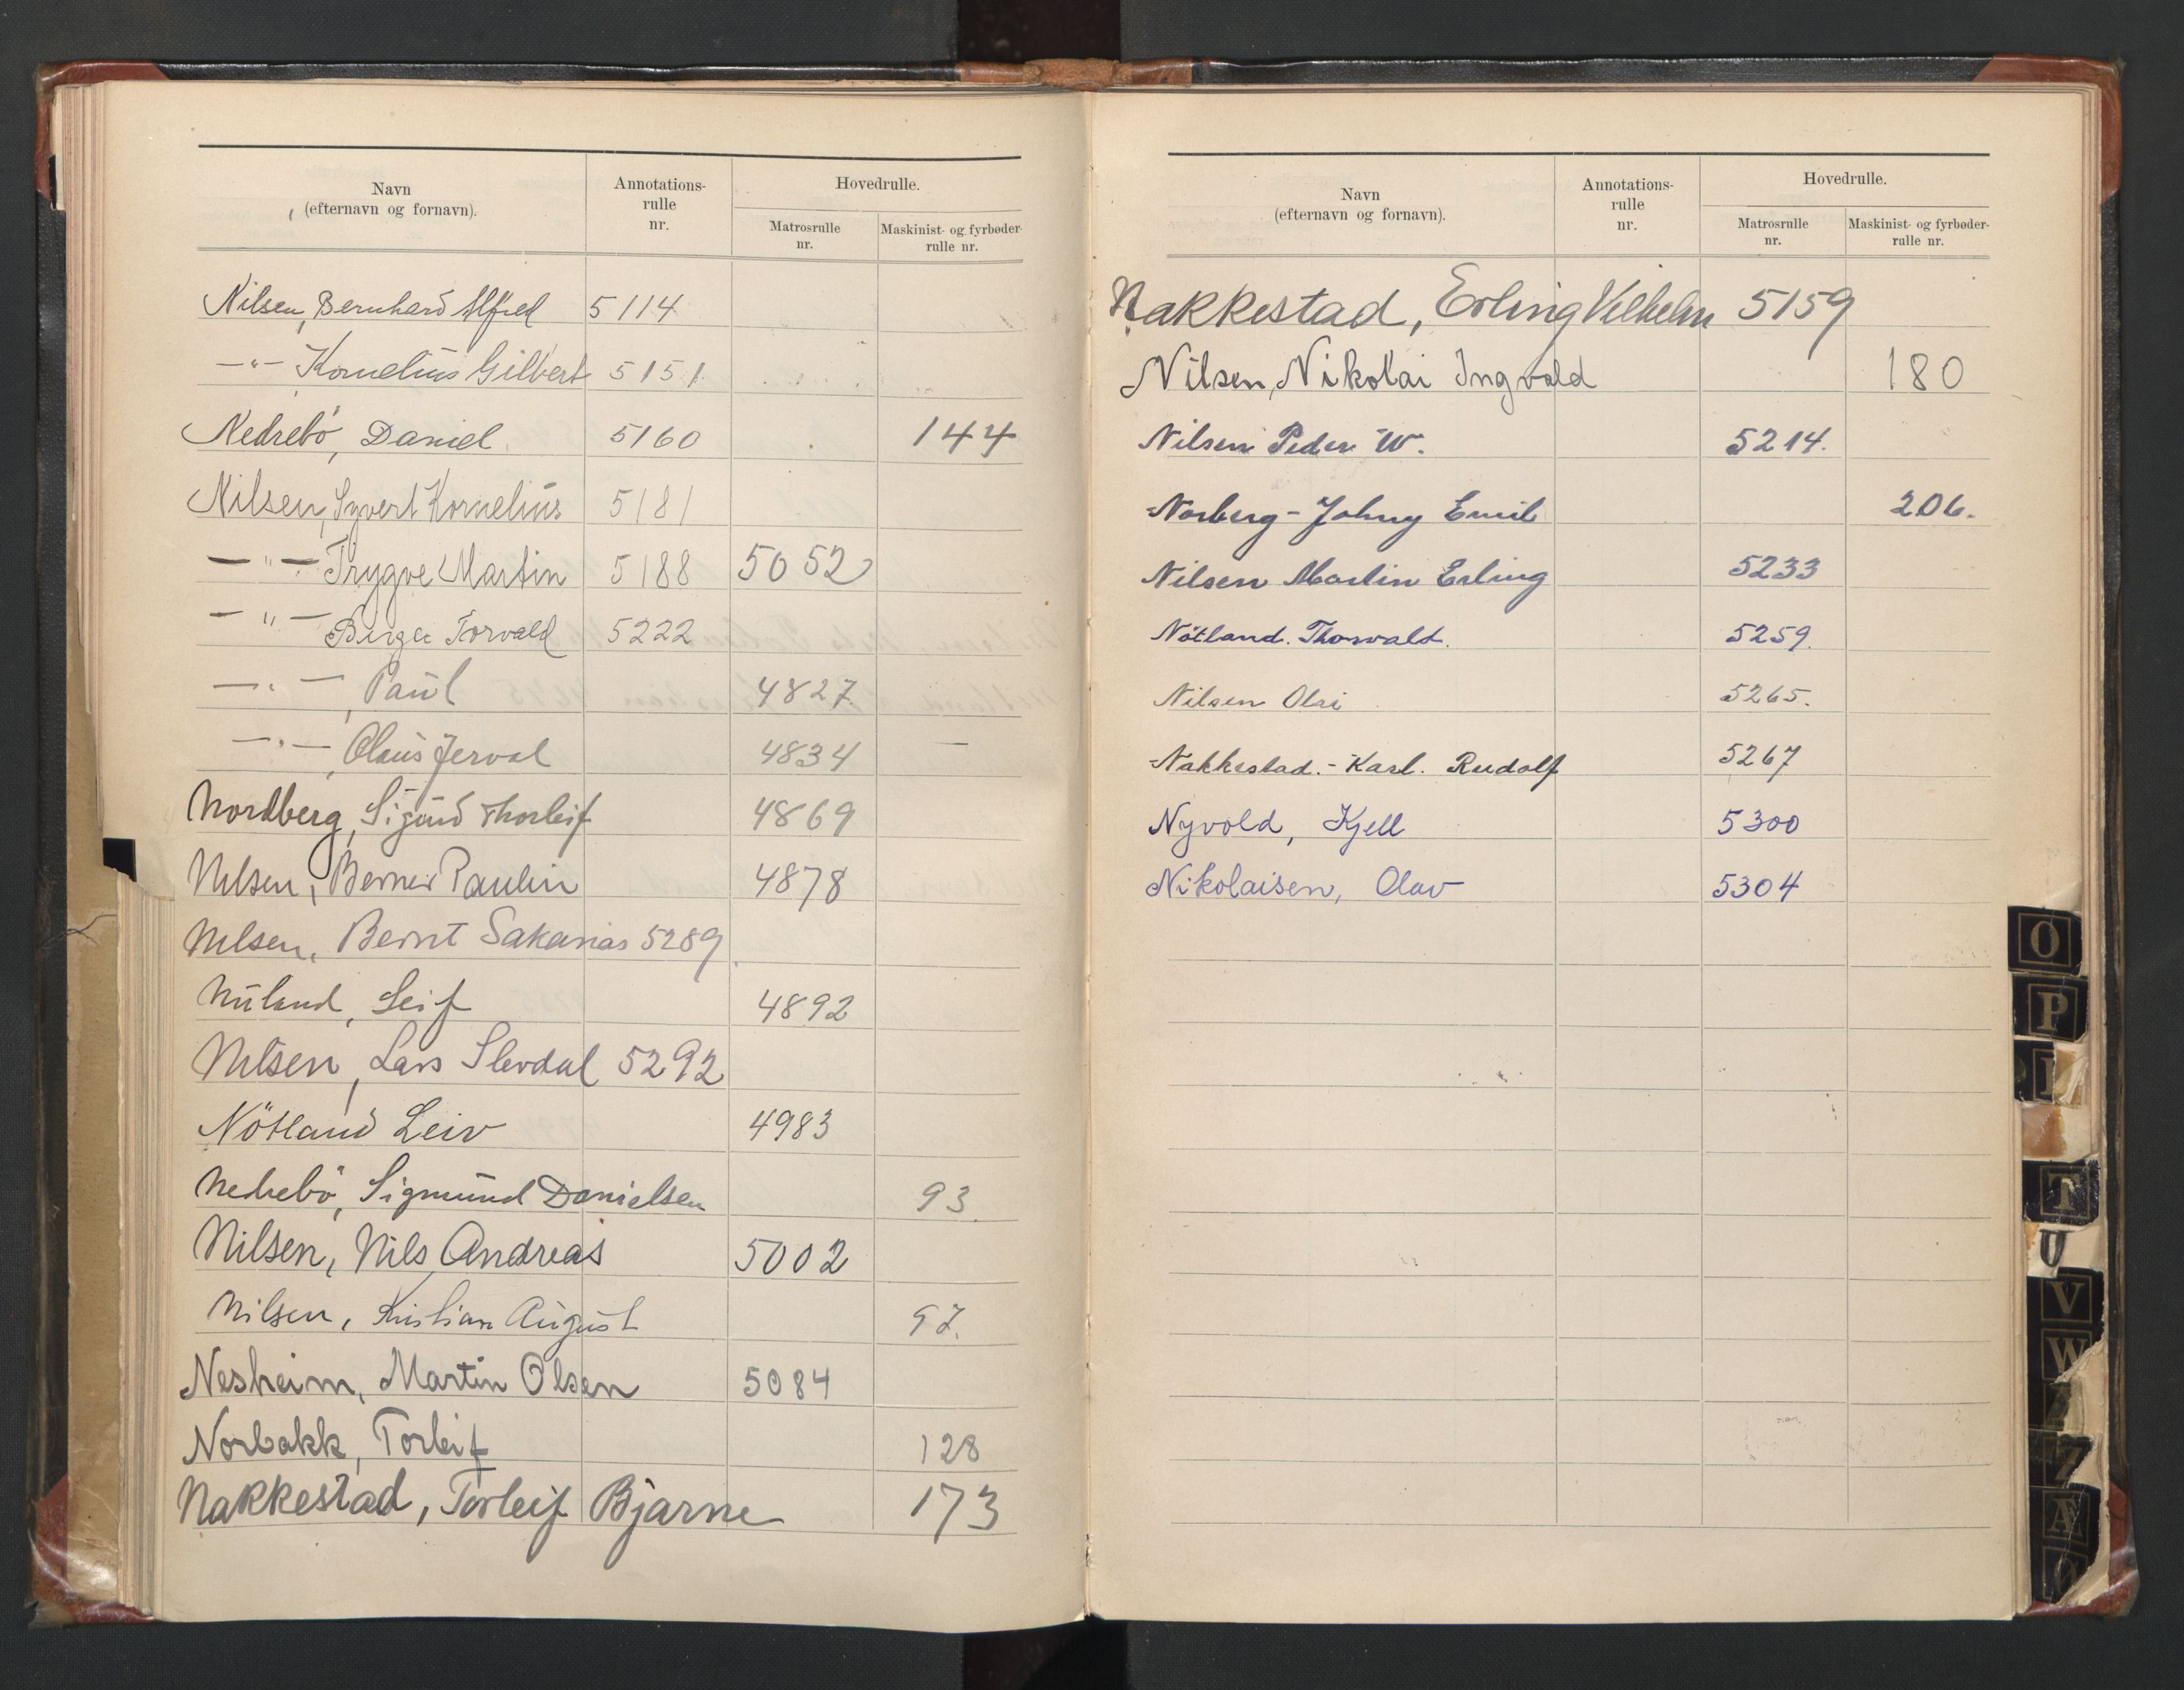 Navn
(efternavn og fornavn).
Annotations-
rulle
nr.
Hovedrulle.
Matrosrulle
nr.
Maskinist- og fyrbøder-
rulle nr.
Nilsen, Bernhard Alfred 5114
—"— Kornelius Gilbert 5151
Nedrebö, Daniel 5160 144
Nilsen, Syvert Kornelius 5181
—"— Trygve Martin 5188 5052
—"— Birger Torvald 5222
—"—, Paul 4827
—"—, Olaus Jerval 4834
Nordberg, Sigurd Thorleif 4869
Nilsen, Berner Paulin 4878
Nilsen, Bernt Sakarias 5289
Nuland, Leif 4892
Nilsen, Lars Slevdal 5292
Nötland Leiv 4983
Nedrebö, Sigmund Danielsen 93
Nilsen, Nils Andreas 5002
Nilsen, Kristian August 97.
Nesheim, Martin Olsen 5084
Norbakk, Torleif 128
Nakkestad, Torleif Bjarne 173
Navn
(efternavn og fornavn).
Annotations-
rulle
nr.
Hovedrulle.
Matrosrulle
nr.
Maskinist- og fyrbøder-
rulle nr.
Nakkestad, Erling Vilhelm 5159
Nilsen, Nikolai Ingvald 180
Nilsen Peder W. 5214.
Norberg - Johny Emil 206.
Nilsen Martin Erling 5233
Nötland. Thorvald. 5259.
Nilsen Olai 5265.
Nakkestad. - Karl. Rudolf 5267
Nyvold, Kjell 5300
Nikolaisen, Olav 5304
O
P
T
U
V
W
Z
Æ